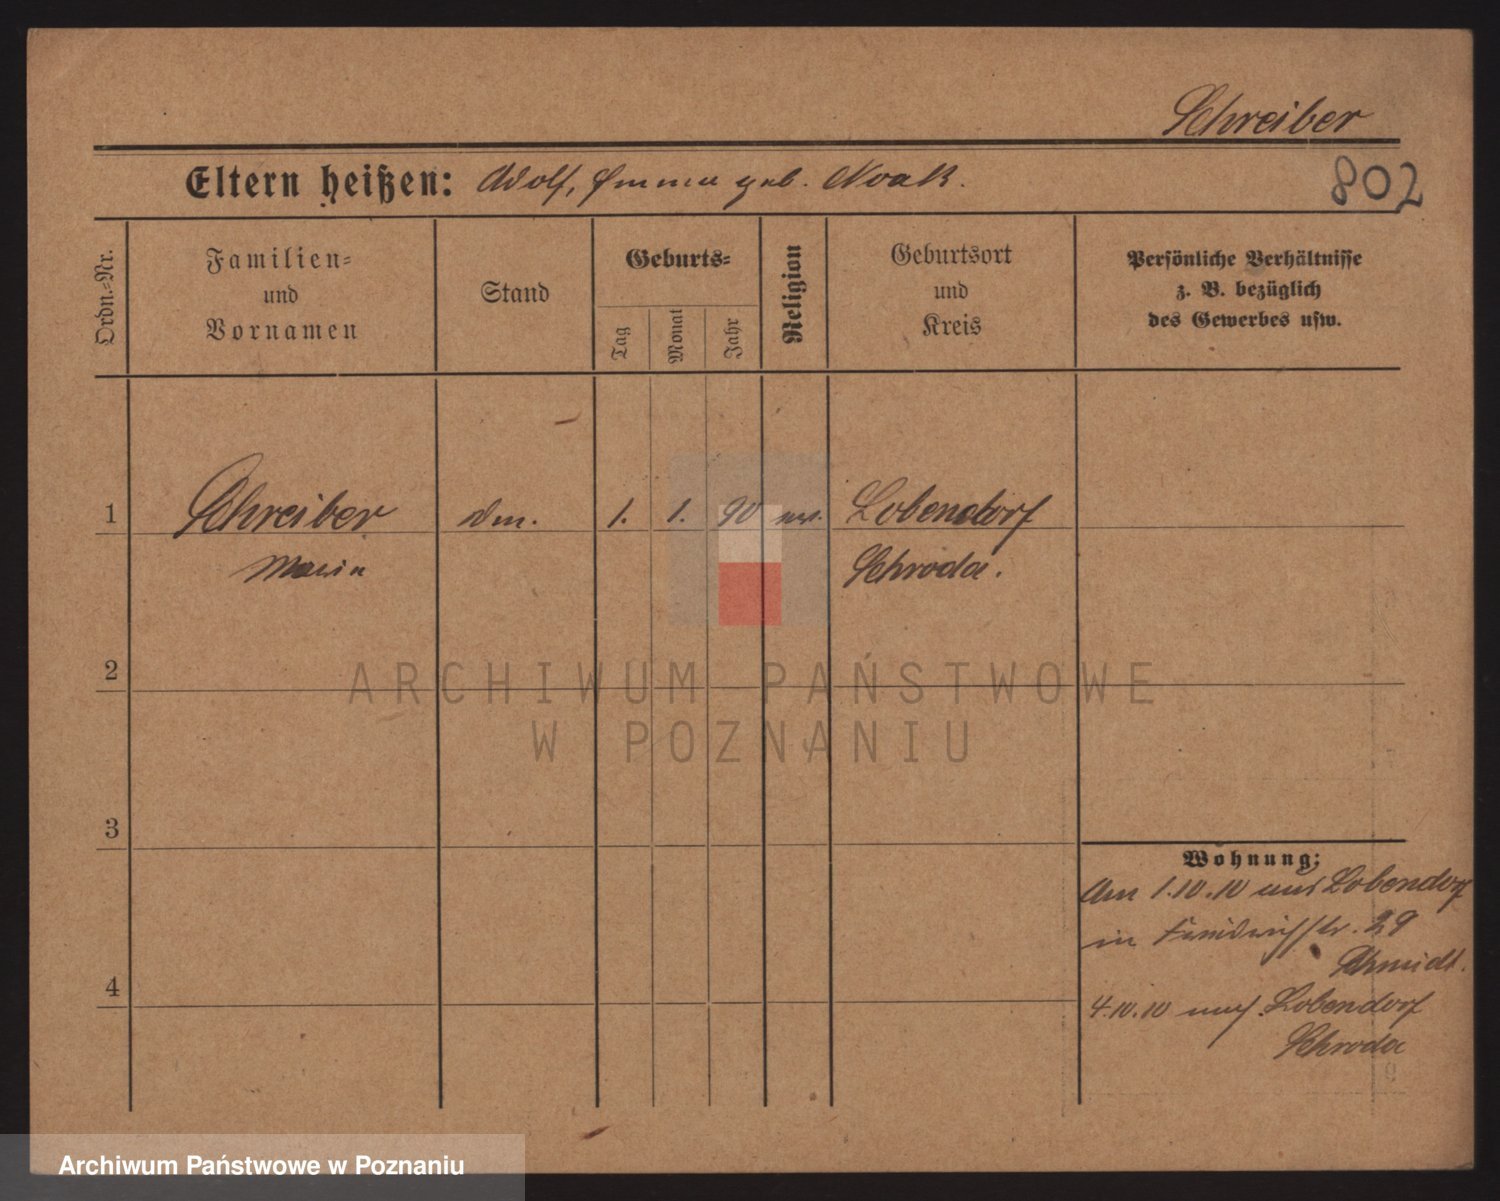 Schreiber
Eltern heißen: Adolf, Emma geb. Noak.
802
Ordn.-Nr.
Familien-
und
Vornamen
Stand
Geburts-
Tag
Monat
Jahr
Religion
Geburtsort
und
Kreis
Persönliche Verhältnisse
z. B. bezüglich
des Gewerbes usw.
1 Schreiber 1. 1. 90 ev. Lobendorf
Maria Schroda.
2
ARCHIWUM PAŃSTWOWE
W POZNANIU
3
Wohnung:
Am 1.10.10 aus Lobendorf
in Friedrichstr. 29
Schmidt.
4
4.10.10 nach Lobendorf
Schroda
Archiwum Państwowe w Poznaniu